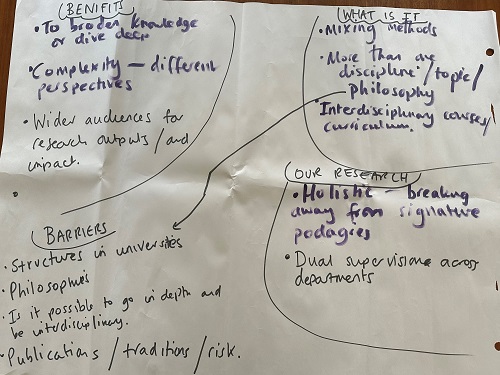 BENIFITS
• To broden knowledge
or dive deep
• Complexity — different
perspectives
• Wider audiences for
research outputs / and
impact.
WHAT IS IT
• Mixing methods
• More than one
discipline / topic /
philosophy
• Interdisciplinary courses /
curriculum.
OUR RESEARCH
• Holistic — breaking
away from signature
podagies
• Dual supervision across
departments
BARRIERS
• Structures in universities
• Philosophies
• Is it possible to go in depth and
be interdisciplinary.
• Publications / traditions / risk.